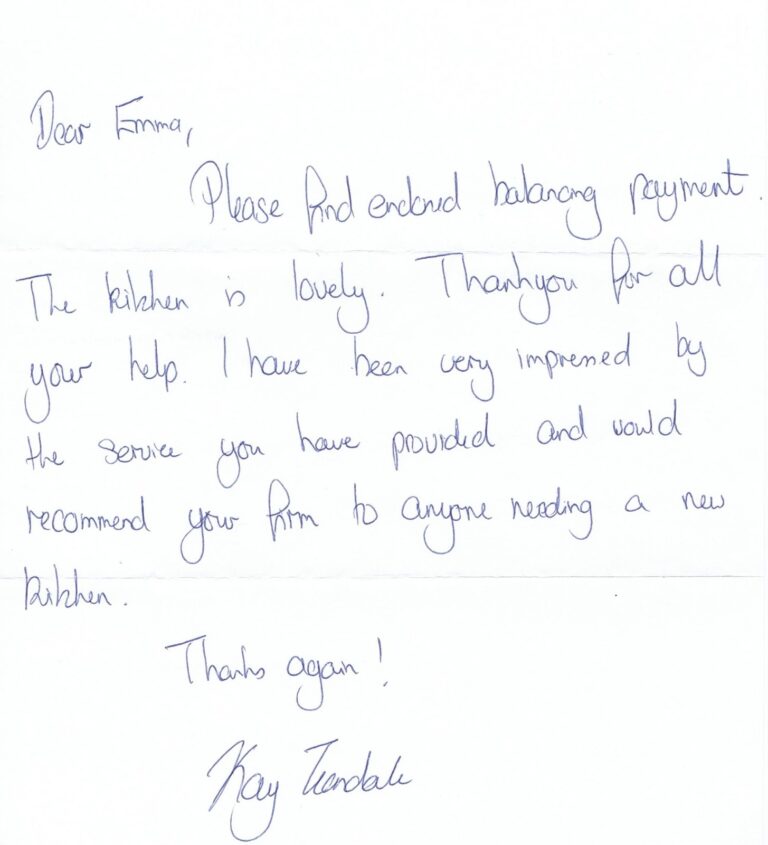 Dear Emma,
Please find enclosed balancing payment.
The kitchen is lovely. Thankyou for all
your help. I have been very impressed by
the service you have provided and would
recommend your firm to anyone needing a new
kitchen.
Thanks again!
Kay